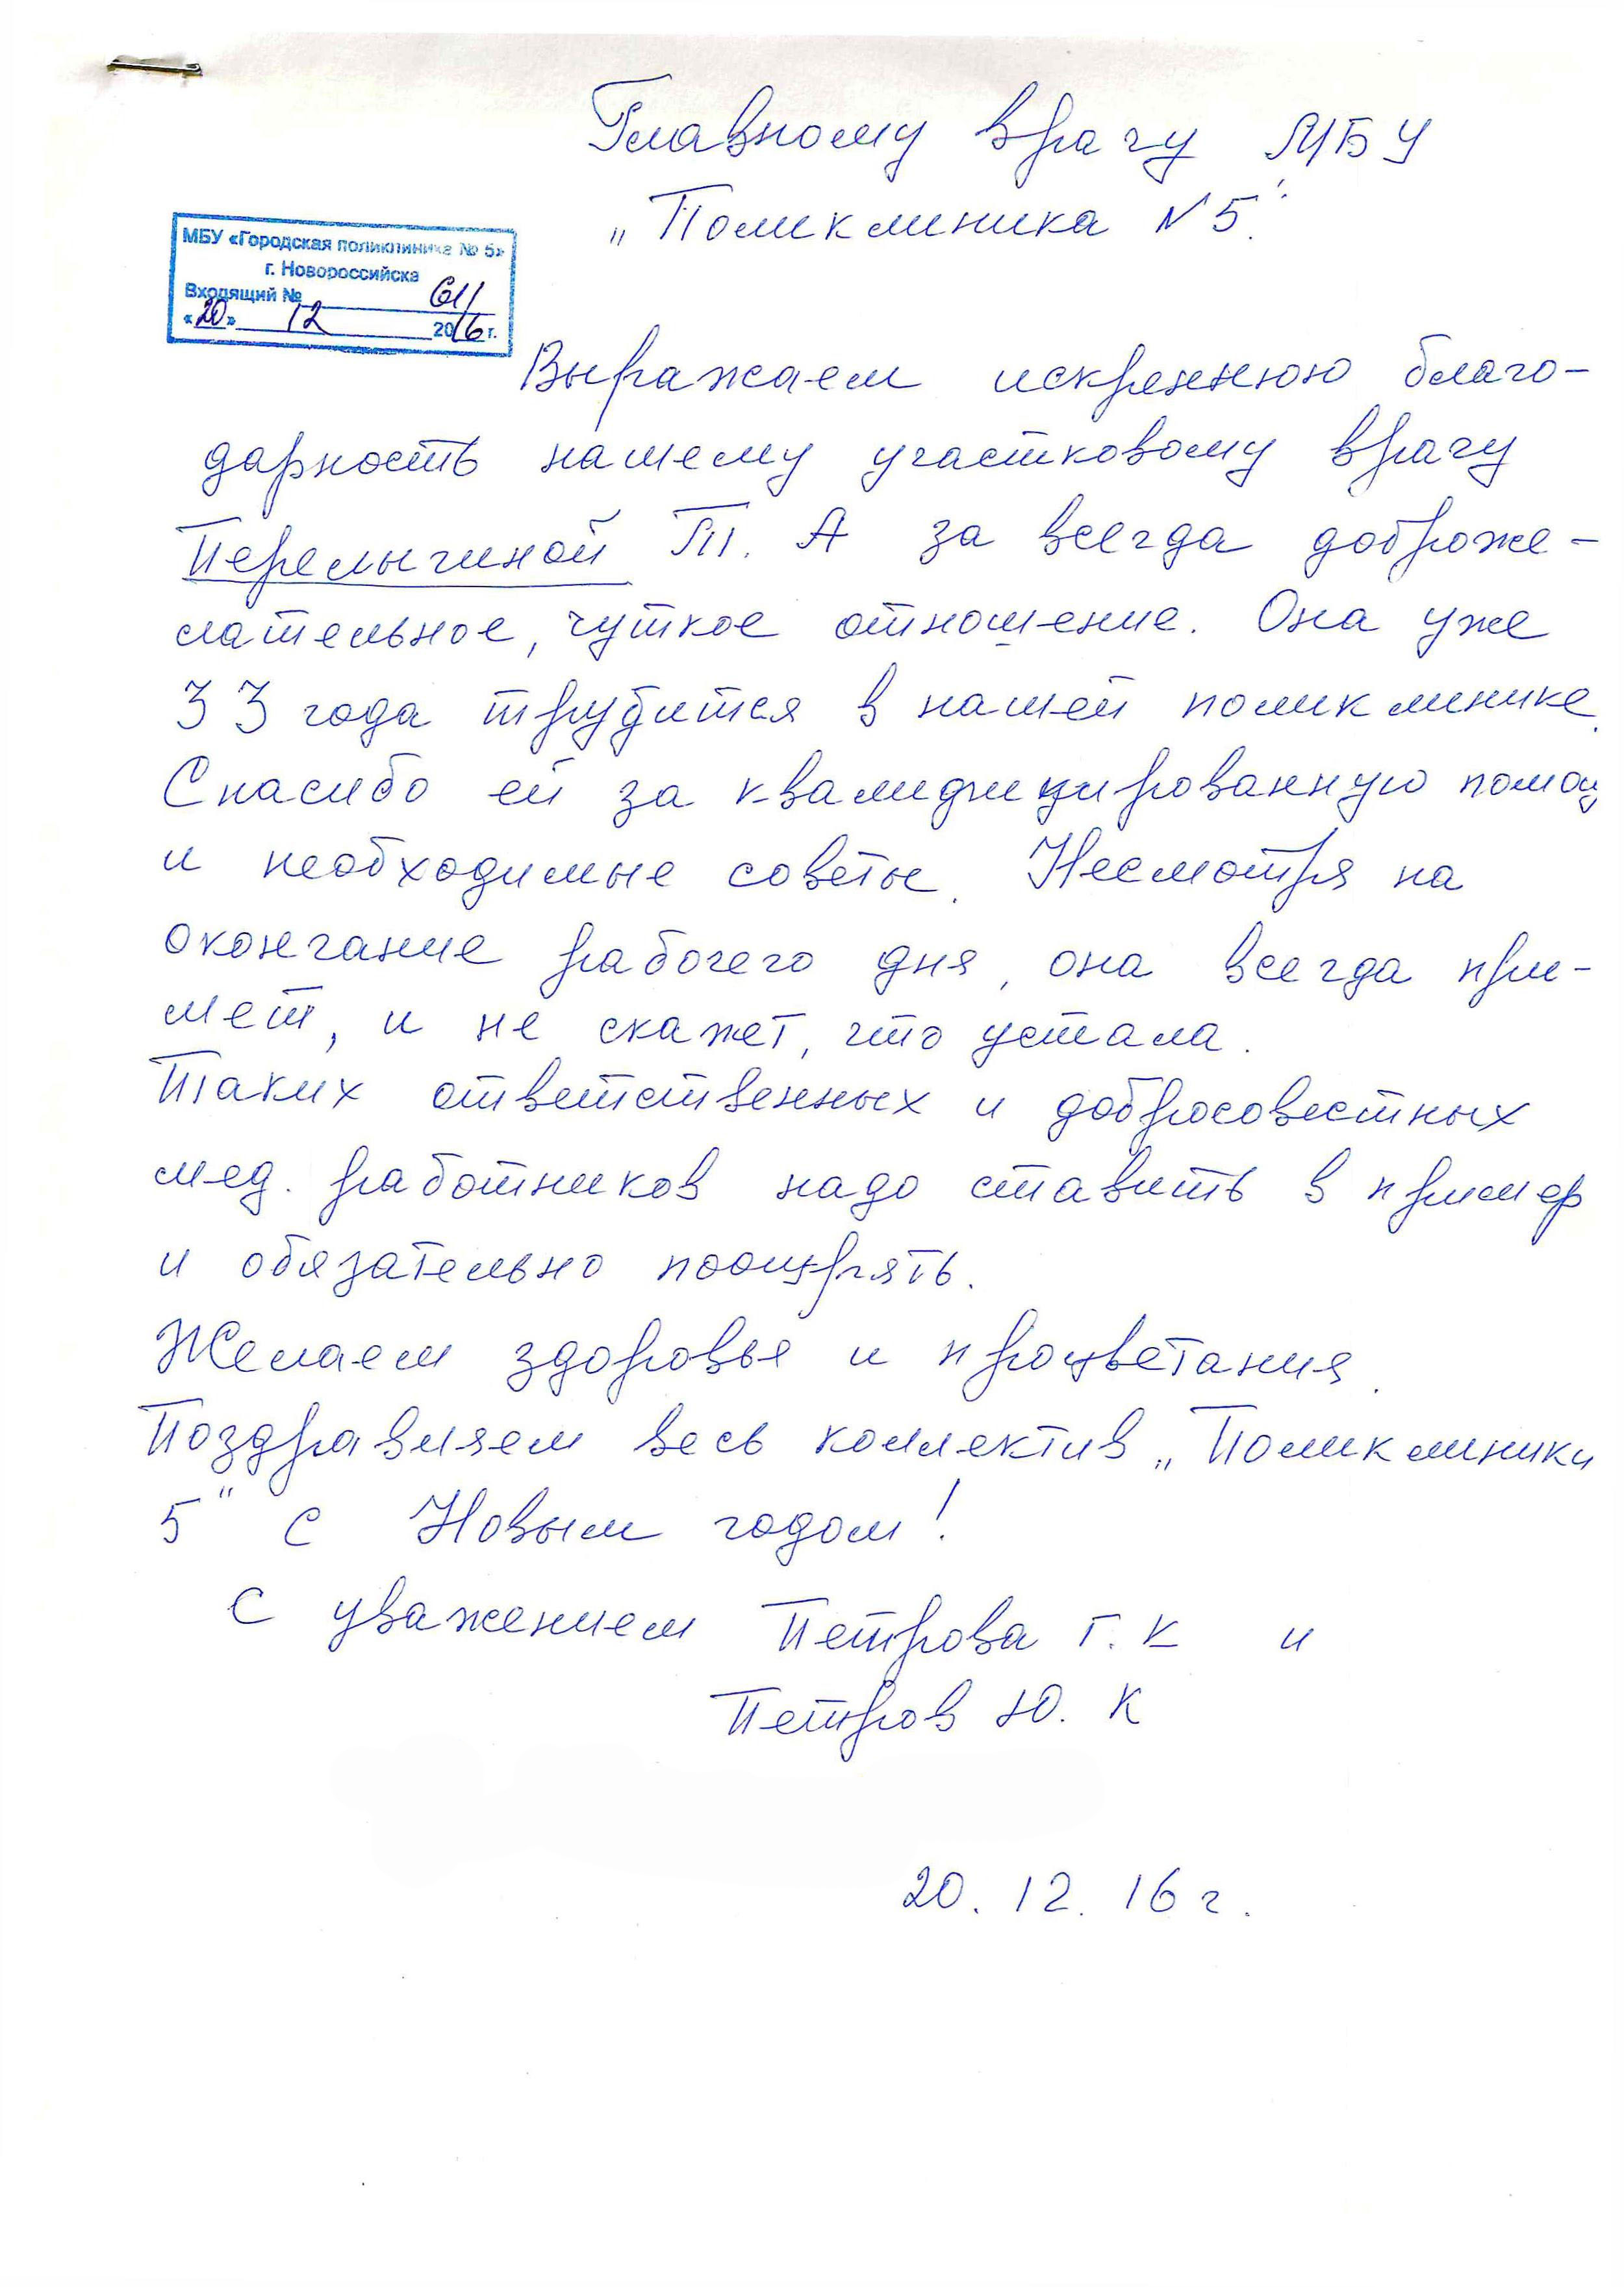 Главному врачу МБУ
„Поликлиника N 5".
МБУ «Городская поликлиника № 5»
г. Новороссийска
Входящий № 611
«20» 12 2016 г.
Выражаем искреннюю благо-
дарность нашему участковому врачу
Перелыгиной Т. А за всегда доброже-
лательное, чуткое отношение. Она уже
33 года трудится в нашей поликлинике.
Спасибо ей за квалифицированную помощ
и необходимые советы. Несмотря на
окончание рабочего дня, она всегда при-
мет, и не скажет, что устала.
Таких ответственных и добросовестных
мед. работников надо ставить в пример
и обязательно поощрять.
Желаем здоровье и процветания.
Поздравляем весь коллектив „Поликлиники
5" с Новым годом!
С уважением Петрова Г. К и
Петров Ю. К
20. 12. 16 г.